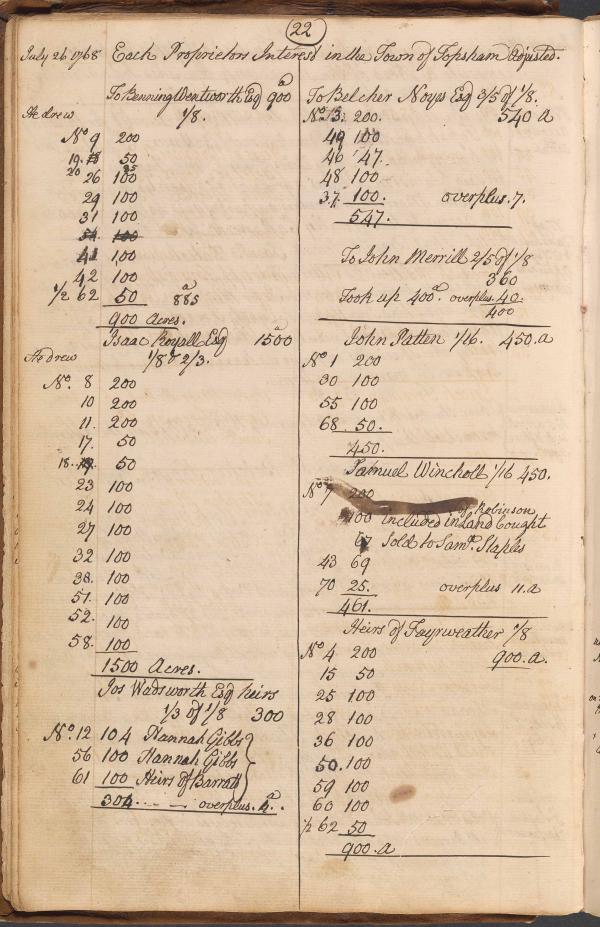 22
July 26 1768 Each Proprietors Interest in the Town of Topsham Adjusted.
To Benning Wentworth Esq 900 a
1/8.
He drew
No 9 200
19. 50
20 26 100 85
29 100
31 100
54 100
41 100
42 100
1/2 62 50 885 a
900 Acres.
Isaac Royall Esq 1500 a
He drew 1/8 & 2/3.
No. 8 200
10 200
11. 200
17. 50
18. 50
23 100
24 100
27 100
32 100
38. 100
51. 100
52. 100
58. 100
1500 Acres.
Jos Wadsworth Esq heirs
1/3 of 1/8 300
No. 12 104 Hannah Gibbs
56 100 Hannah Gibbs
61 100 Heirs of Barratt
304 overplus. 4. a
To Belcher Noyes Esq 3/5 of 1/8.
No. 13. 200. 540 a
49 100
46 47.
48 100
37. 100. overplus. 7.
547.
To John Merrill 2/5 of 1/8
360
Took up 400 a. overplus. 40.
400
John Patten 1/16. 450. a
No 1 200
30 100
55 100
68 50.
450.
Samuel Wincholt 1/16 450.
No 7 200
of Robinson
100 included in Land bought
67 Sold to Saml. Staples
43 69
70 25. overplus 11. a
461.
Heirs of Fayrweather 1/8
No 4 200 900. a.
15 50
25 100
28 100
36 100
50. 100
59 100
60 100
1/2 62 50
900. a